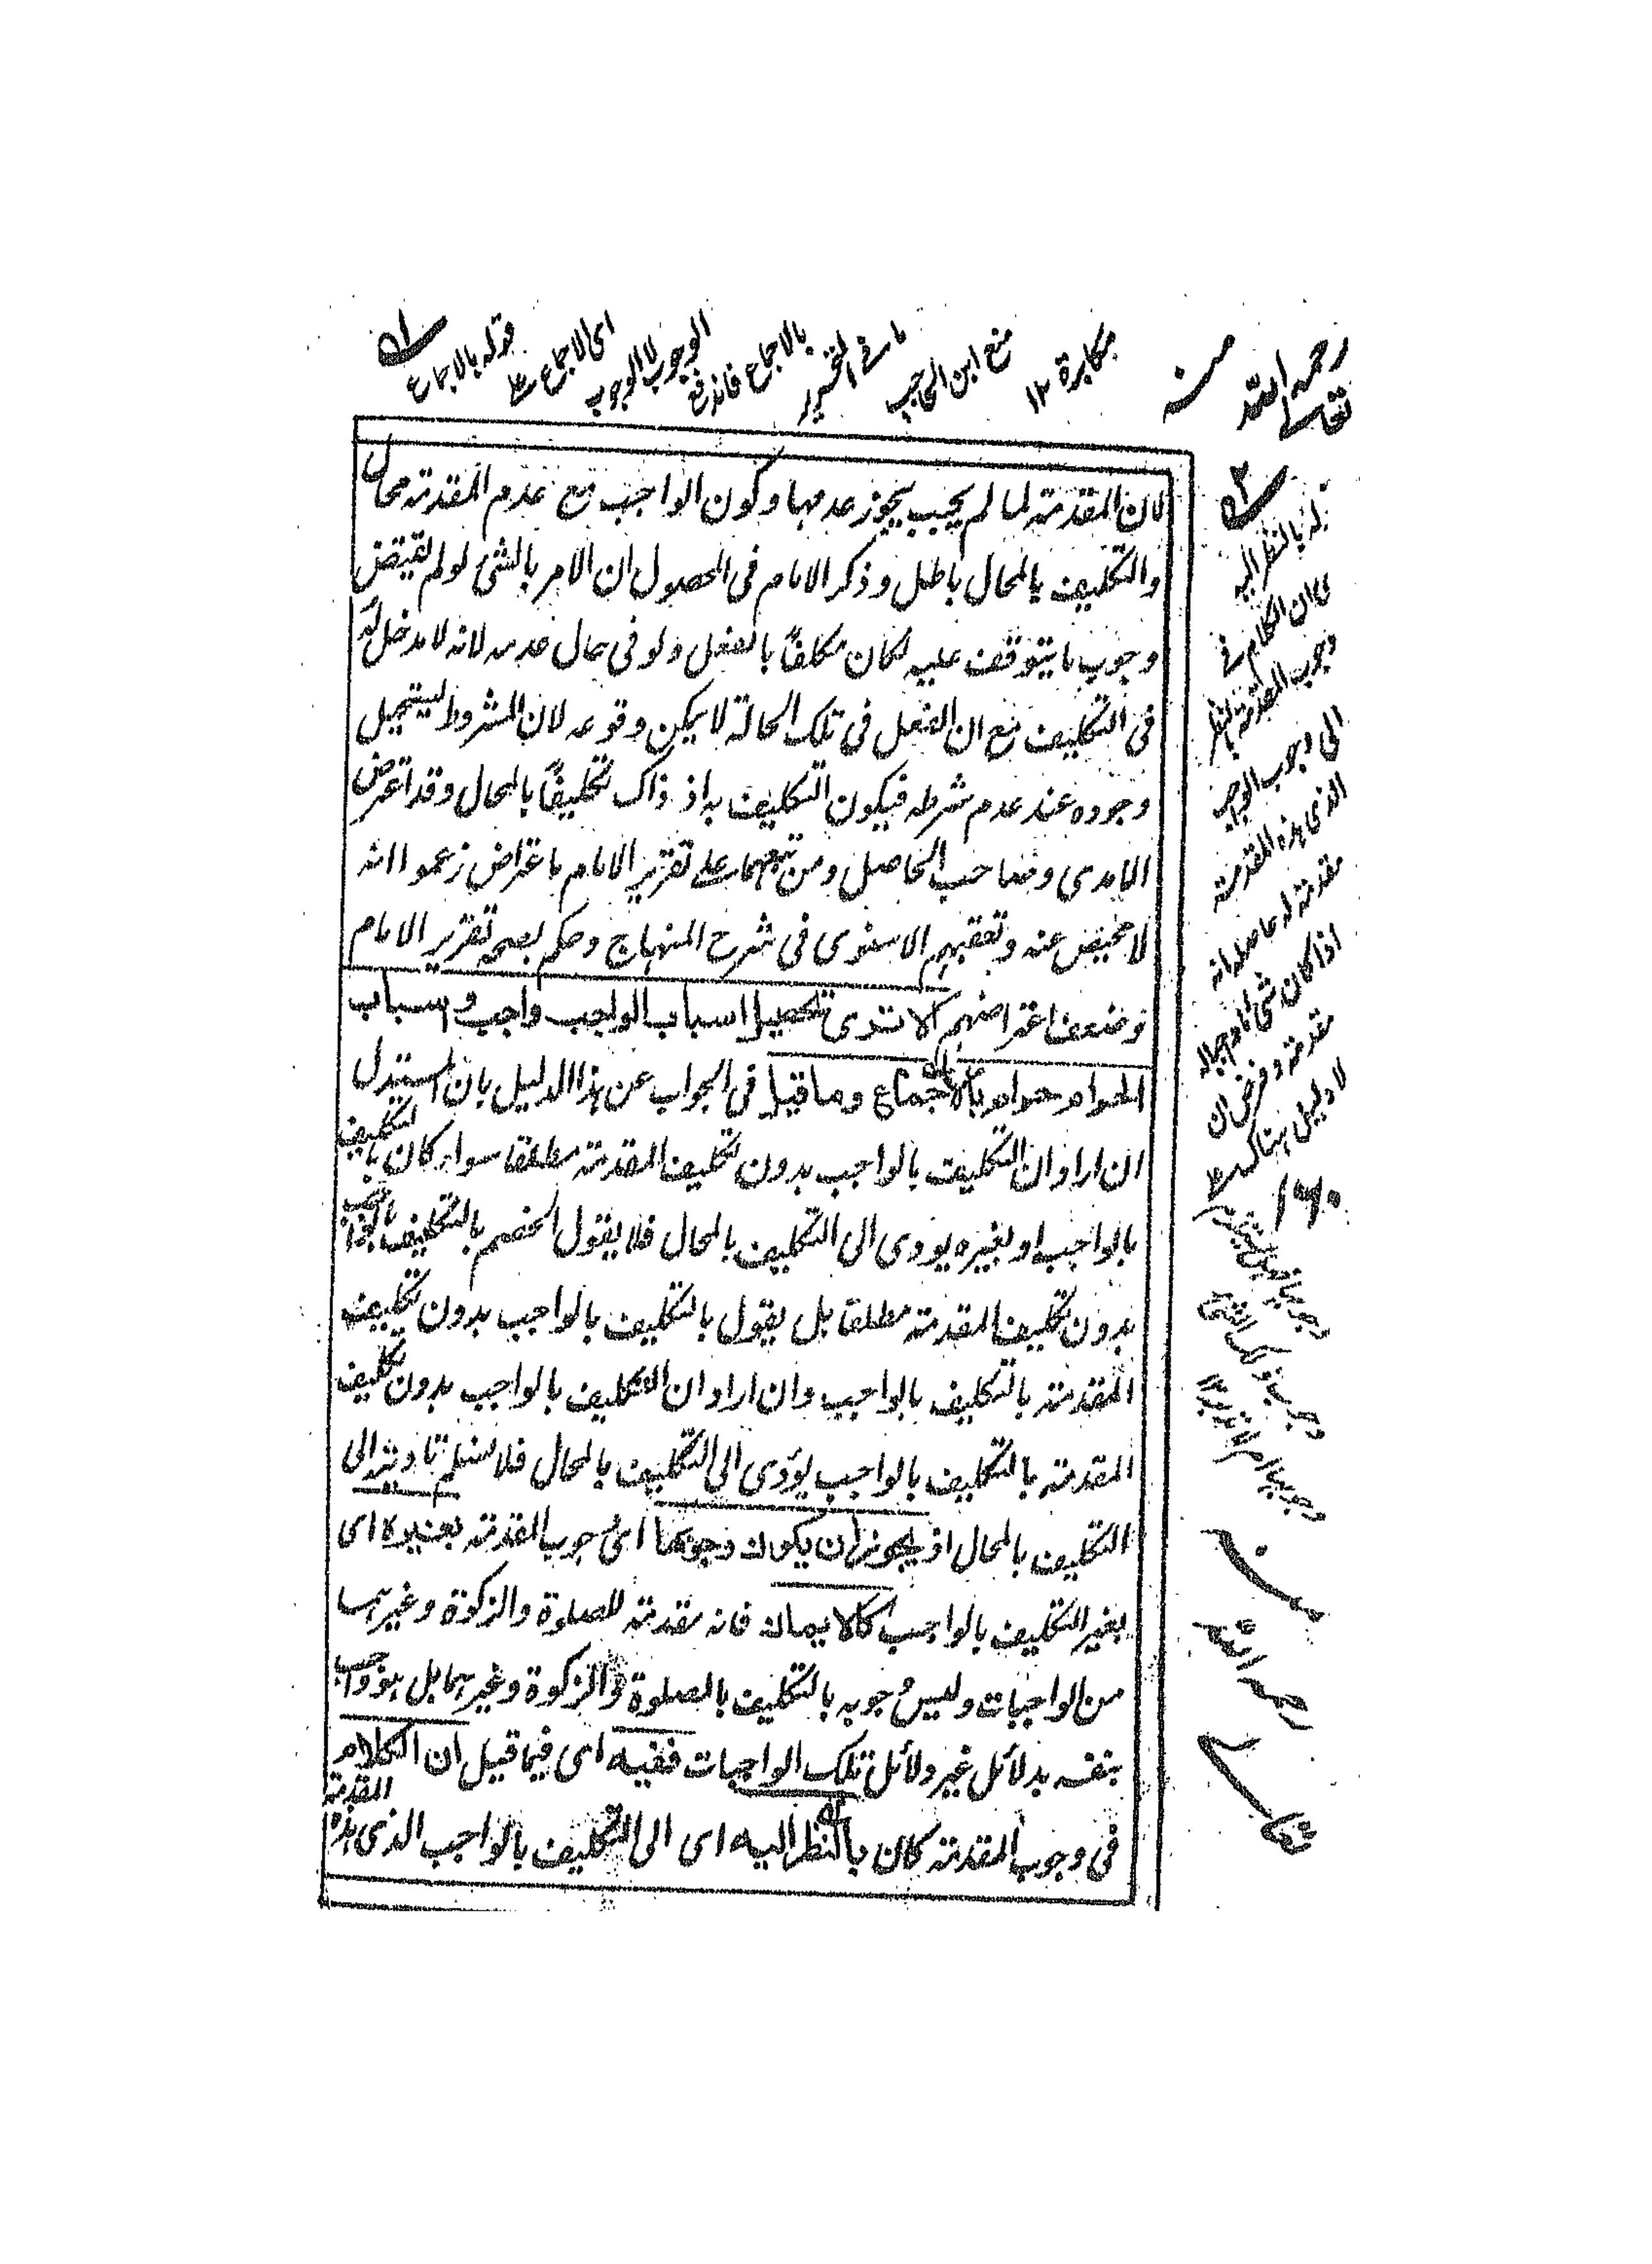 قوله بالاجماع
اى الاجماع على
الوجوب لا الوجوب
بالاجماع فاندفع
ما فى التحرير
منع ابن الحاجب
مكابرة ١٢
منه
رحمه الله
تعالى
لان المقدمة لما لم يجب يجوز عدمها وكون الواجب مع عدم المقدمة محال
والتكليف بالمحال باطل وذكر الامام فى المحصول ان الامر بالشئ لو لم يقتض
وجوب ما يتوقف عليه لكان مكلفاً بالفعل ولو فى حال عدمه لانه لا مدخل له
فى التكليف مع ان الفعل فى تلك الحالة لا يمكن وقوعه لان المشروط يستحيل
وجوده عند عدم شرطه فيكون التكليف به اذ ذاك تكليفاً بالمحال وقد اعترض
الامدى وصاحب الحاصل ومن تبعهما على تقرير الامام باعتراض زعموا انه
لا محيص عنه وتعقبهم الاسنوى فى شرح المنهاج وحكم بصحة تقرير الامام
وضعف اعتراضهم الا ترى تحصيل اسباب الواجب واجب واسباب
الحرام حرام بالاجماع وما قيل فى الجواب عن هذا الدليل بان المستدل
ان اراد ان التكليف بالواجب بدون تكليف المقدمة مطلقا سواء كان بالتكليف
بالواجب او بغيره يودى الى التكليف بالمحال فلا يقول الخصم بالتكليف بالواجب
بدون تكليف المقدمة مطلقا بل يقول بالتكليف بالواجب بدون تكليف
المقدمة بالتكليف بالواجب وان اراد ان التكليف بالواجب بدون تكليف
المقدمة بالتكليف بالواجب يؤدى الى التكليف بالمحال فلا نسلم تاديته الى
التكليف بالمحال اذ يجوز ان يكون وجوبها اى وجوب المقدمة بغيره اى
بغير التكليف بالواجب كالايمان فانه مقدمة للصلوة والزكوة وغيرهما
من الواجبات وليس وجوبه بالتكليف بالصلوة والزكوة وغيرهما بل هو واجب
بنفسه بدلائل غير دلائل تلك الواجبات ففيه اى فيما قيل ان الكلام
فى وجوب المقدمة كان بالنظر اليه اى الى التكليف بالواجب الذى هذه المقدمة
قوله بالنظر اليه
اى ان الكلام فى
وجوب المقدمة بالنظر
الى وجوب الواجب
الذى هذه المقدمة
مقدمة له حاصله انه
اذا كان شئ ما وجب له
مقدمة وفرض ان
لا دليل هناك على